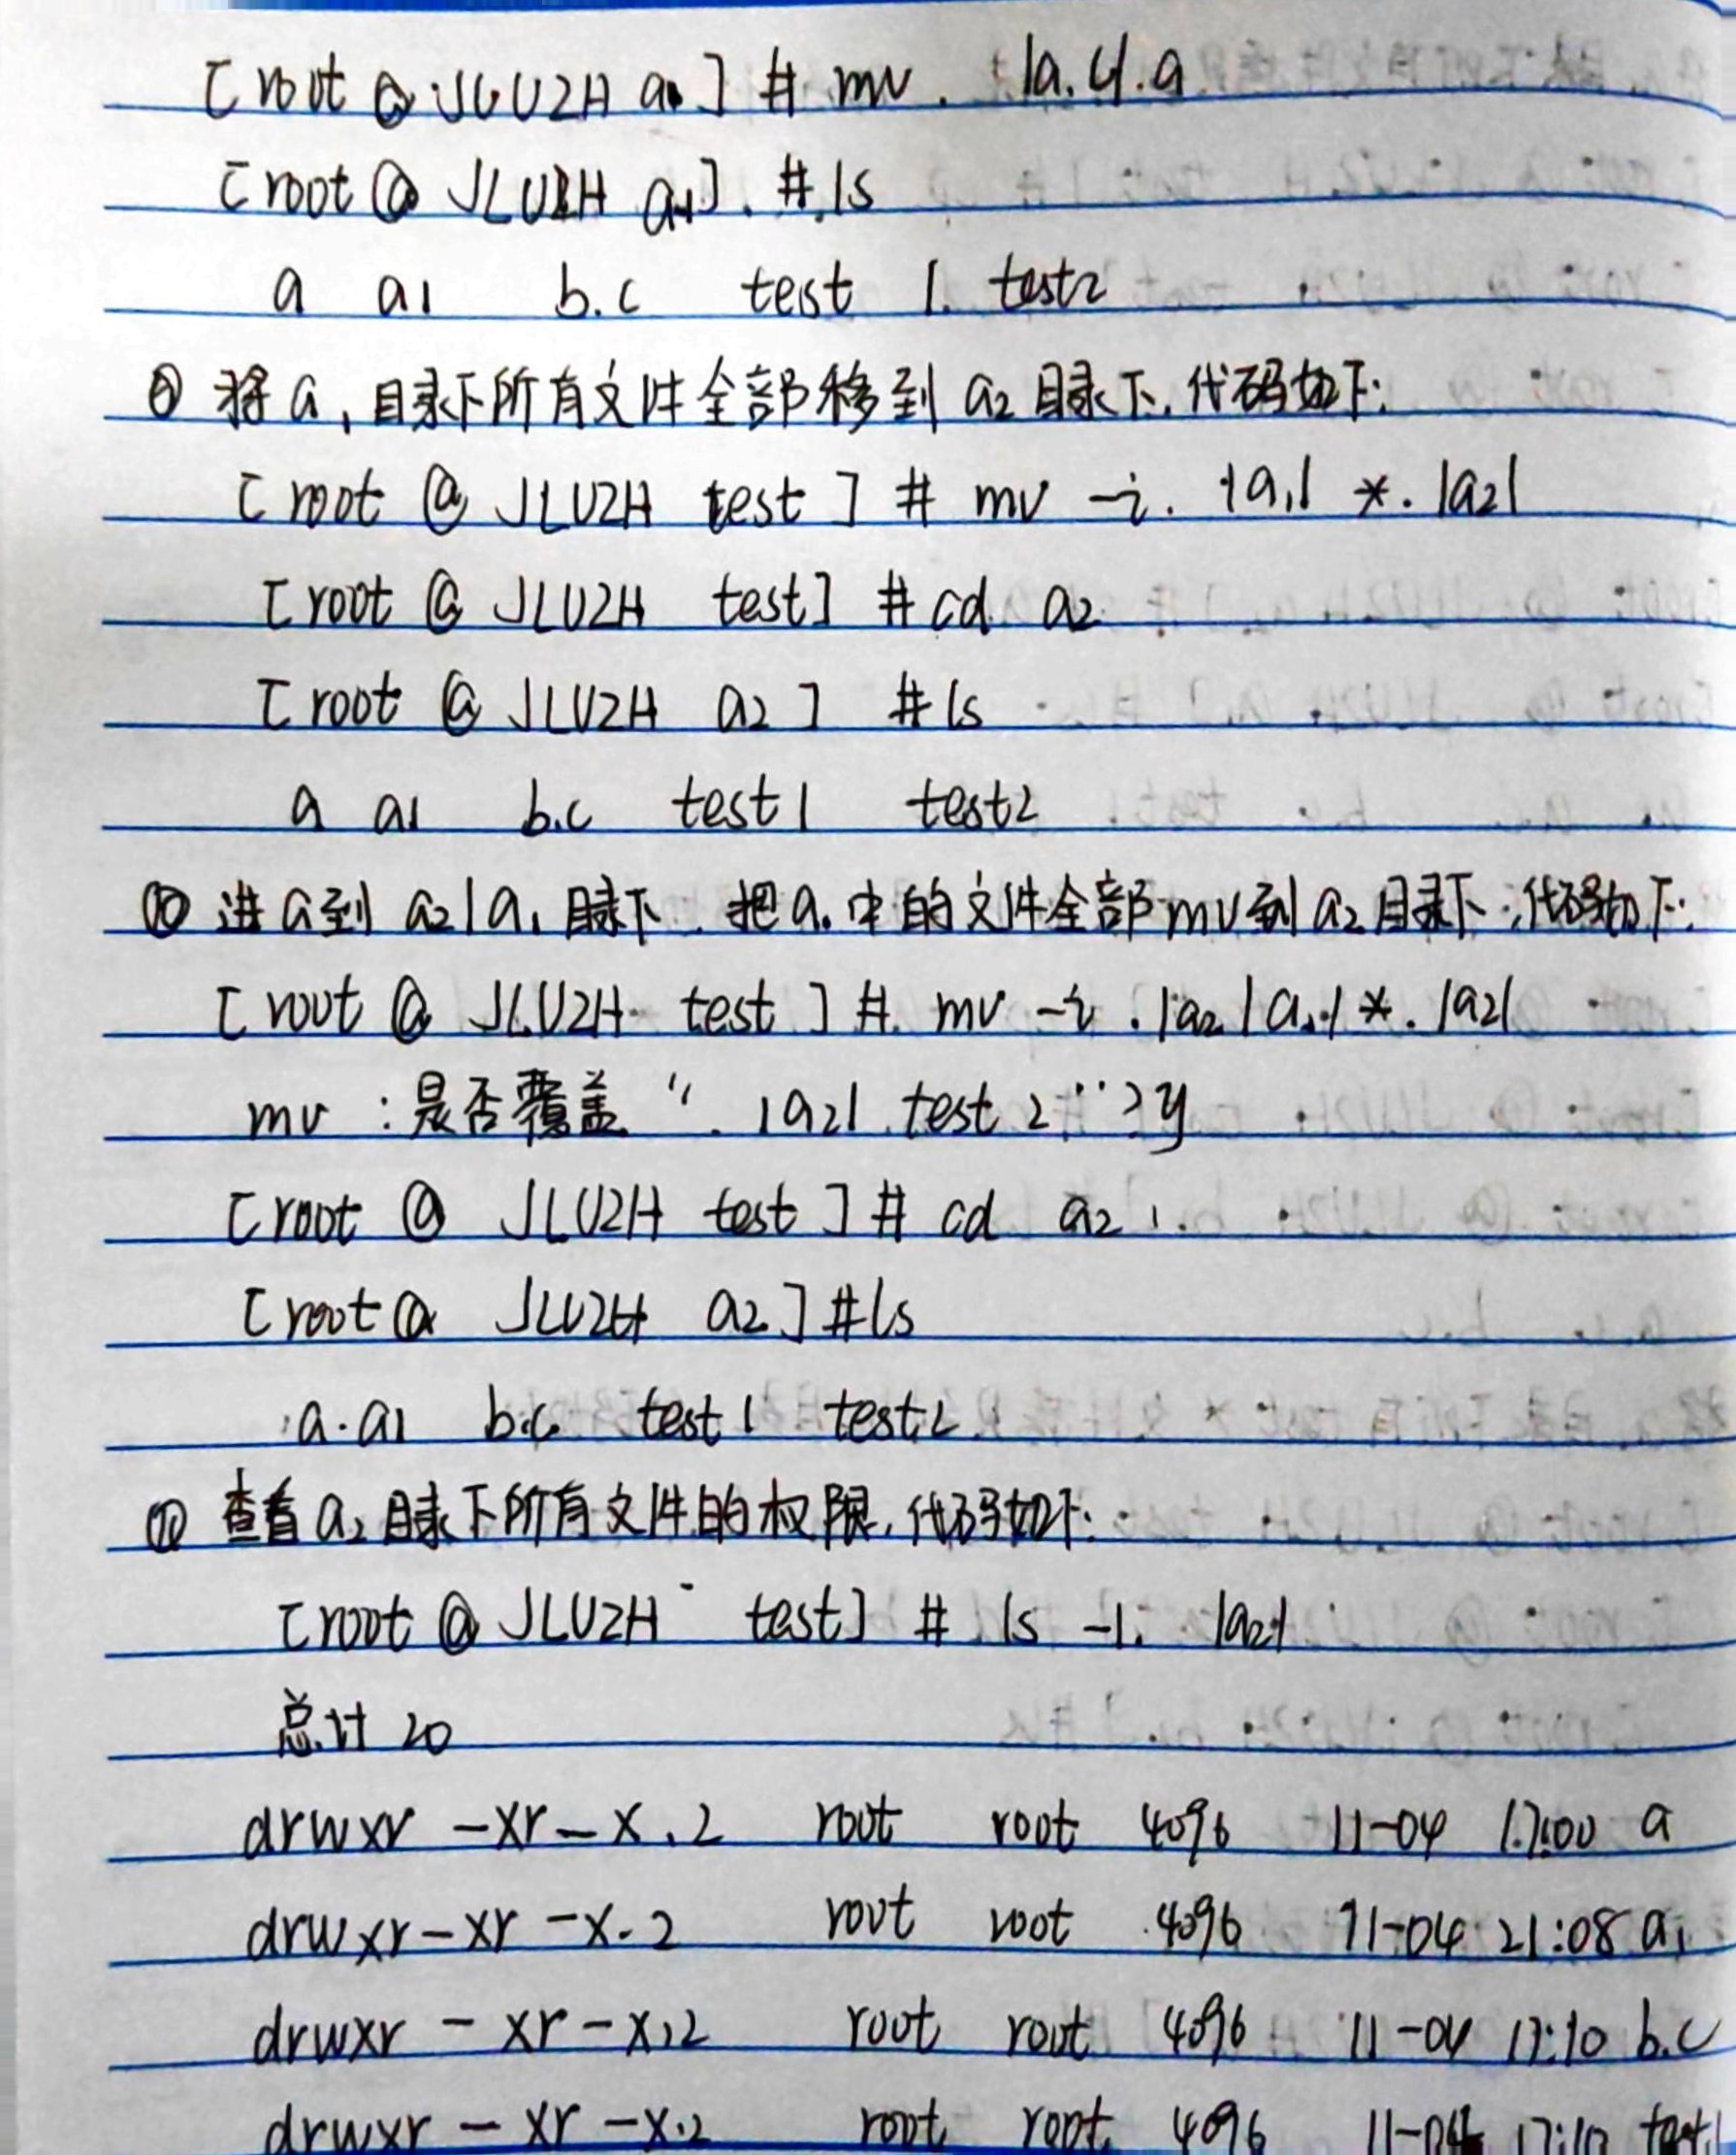 [root @ JLUZH a1] # mv . /a.c/.a
[root @ JLUZH a1]. # ls
a a1 b.c test 1. test2
⑨ 将a1目录下所有文件全部移到a2目录下,代码如下:
[root @ JLUZH test] # mv -i. /a1/ *. /a2/
[root @ JLUZH test] # cd a2
[root @ JLUZH a2] # ls
a a1 b.c test1 test2
⑩ 进a到a2/a1目录下,把a1中的文件全部mv到a2目录下,代码如下:
[root @ JLUZH test] # mv -i ./a2/a1/*. /a2/
mv :是否覆盖 “. /a2/ test 2”?y
[root @ JLUZH test] # cd a2
[root @ JLUZH a2] # ls
a. a1 b.c test1 test2
⑪ 查看a2目录下所有文件的权限,代码如下:
[root @ JLUZH test] # ls -l. /a2/
总计 20
drwxr -xr-x.2 root root 4096 11-04 17:00 a
drwxr-xr -x.2 root root 4096 11-04 21:08 a1
drwxr - xr-x.2 root root 4096 11-04 17:10 b.c
drwxr - xr -x.2 root root 4096 11-04 17:10 test1